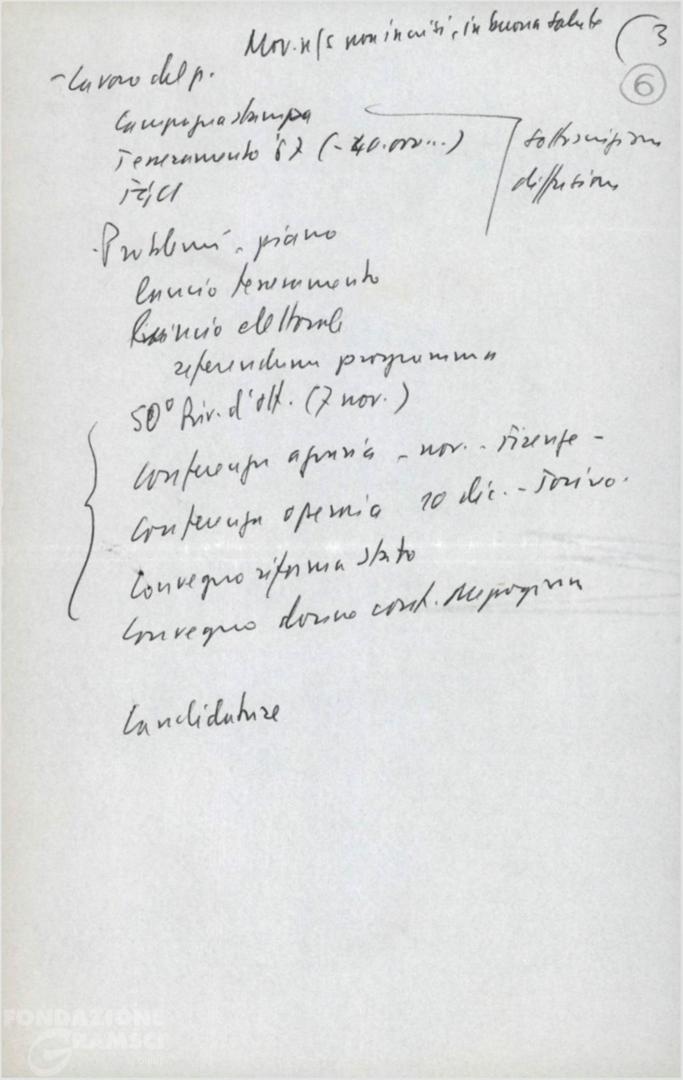 Mov. n/s non in crisi, in buona salute
3
6
- Lavoro del p.
Campagna stampa
Tesseramento '67 (- 40.000...)
sottoscrizione
diffusione
FGCI
- Problemi - piano
Lancio tesseramento
elettorale
referendum programma
50° Riv. d'Ott. (7 nov.)
Conferenza agraria - nov. - Firenze -
Conferenza operaia 10 dic. - Torino.
Convegno riforma stato
Convegno donne cont.
Candidature
FONDAZIONE
GRAMSCI